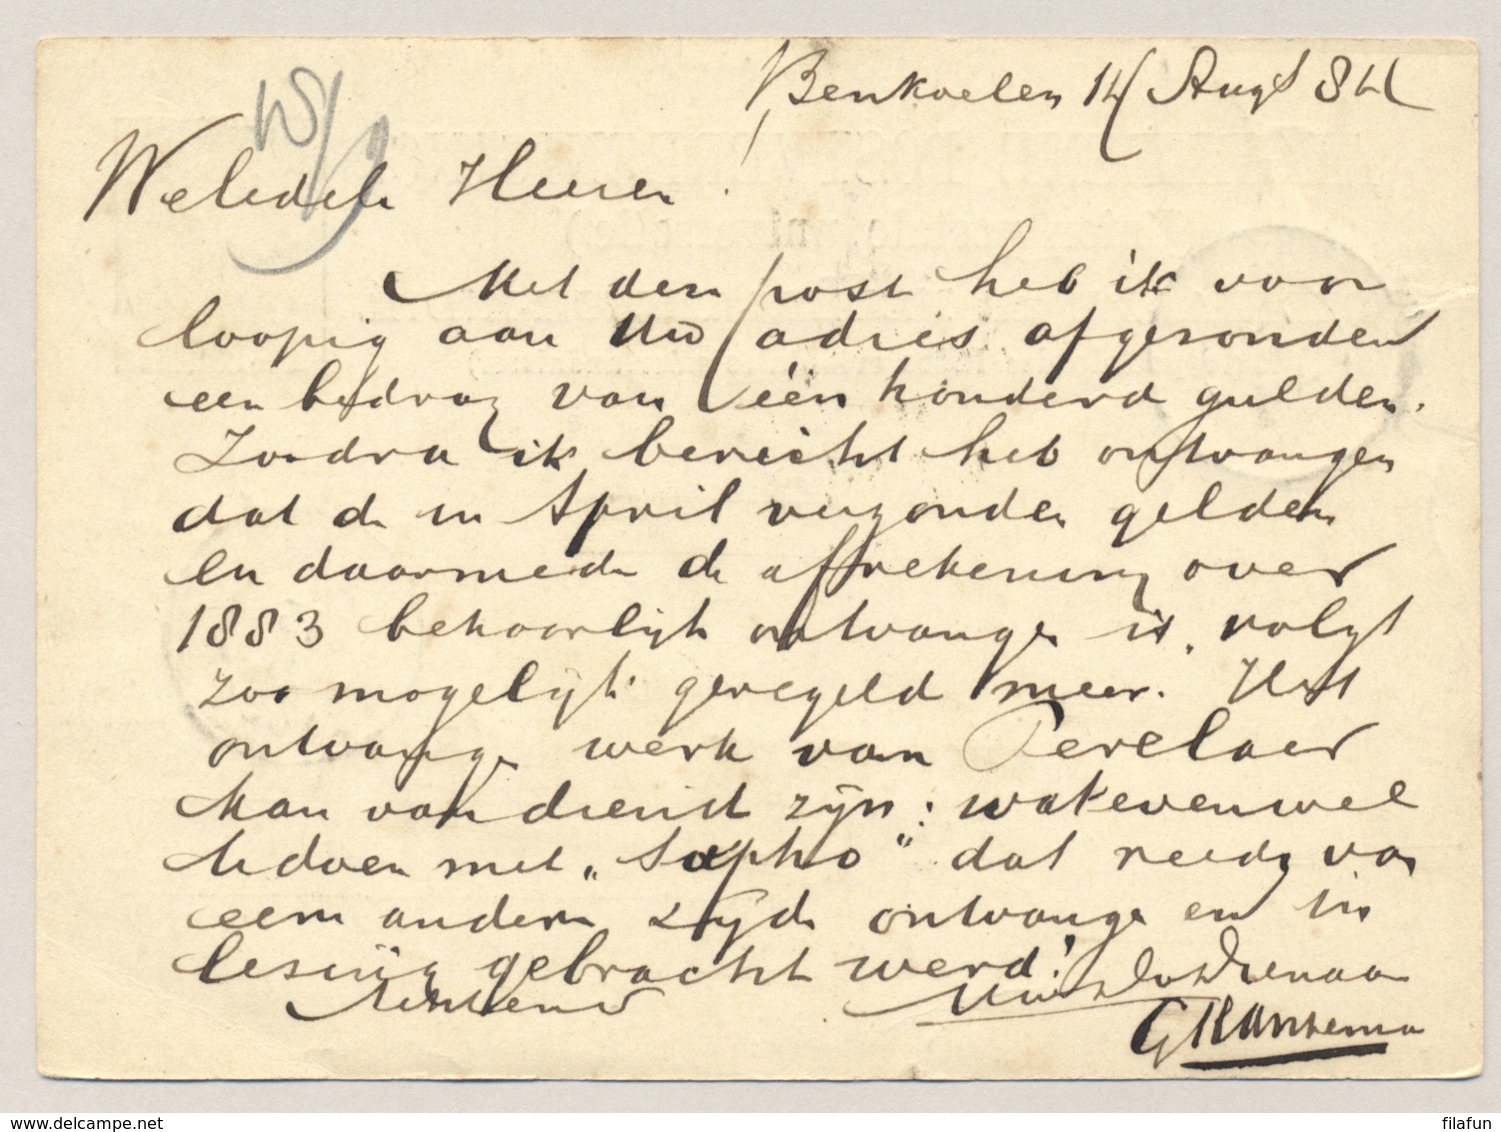 Benkoelen 14 Augt 84
Weledele Heeren
Met den post heb ik voor
loopig aan Uw adres afgezonden
een bedrag van één honderd gulden.
Zoodra ik bericht heb ontvangen
dat de in April verzonden gelden
en daarmede de afrekening over
1883 behoorlijk ontvangen is, volgt
zoo mogelijk geregeld meer. Het
ontvangen werk van Perelaer
kan van dienst zijn: wat evenwel
te doen met „Sapho" dat reeds van
eene andere zijde ontvangen en in
lezing gebracht werd!
Achtend Uw dw dienaar
filafun